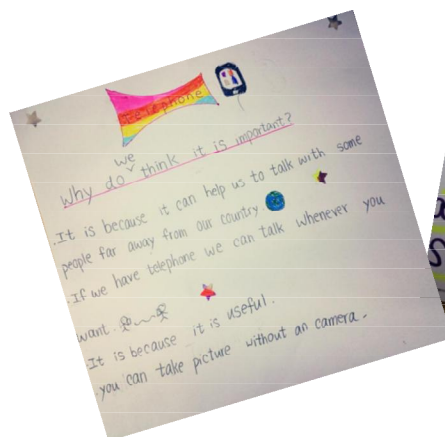 Telephone
Why do we think it is important?
.It is because it can help us to talk with some
people far away from our country
.If we have telephone we can talk whenever you
want.
.It is because it is useful.
.you can take picture without an camera.